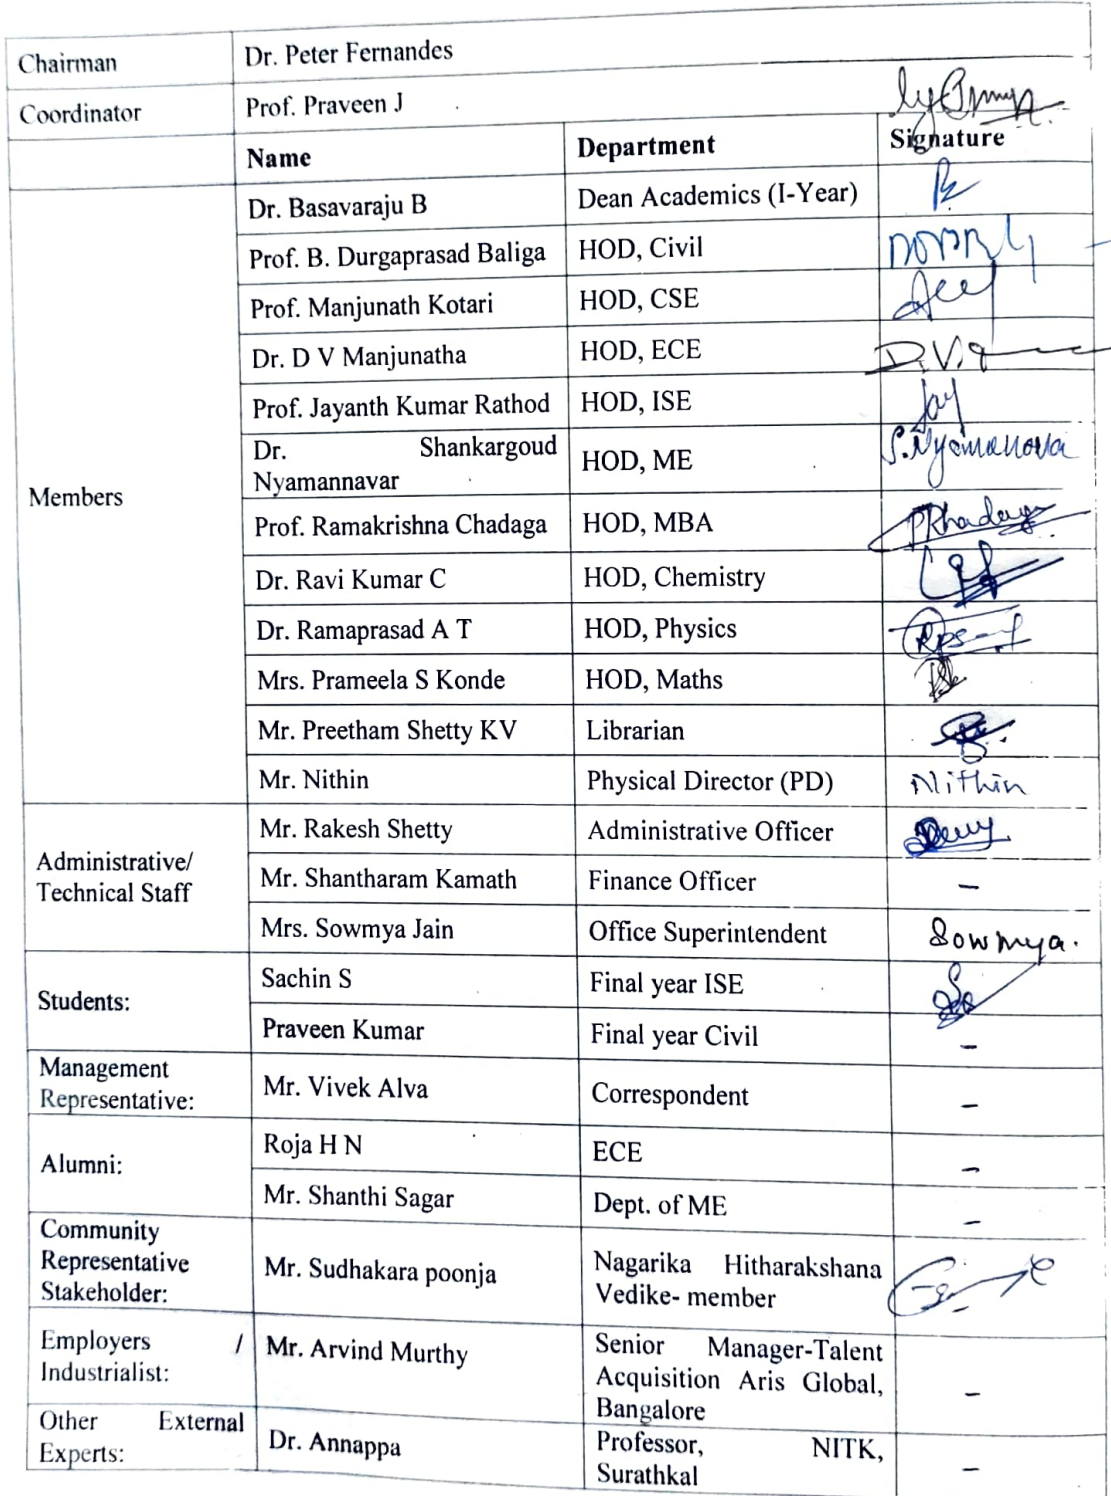 Chairman Dr. Peter Fernandes
Coordinator Prof. Praveen J
Name Department Signature
Dr. Basavaraju B Dean Academics (I-Year)
Prof. B. Durgaprasad Baliga HOD, Civil
Prof. Manjunath Kotari HOD, CSE
Dr. D V Manjunatha HOD, ECE D.V.
Prof. Jayanth Kumar Rathod HOD, ISE Jay
Dr. Shankargoud
Nyamannavar HOD, ME
Members
Prof. Ramakrishna Chadaga HOD, MBA
Dr. Ravi Kumar C HOD, Chemistry
Dr. Ramaprasad A T HOD, Physics
Mrs. Prameela S Konde HOD, Maths
Mr. Preetham Shetty KV Librarian
Mr. Nithin Physical Director (PD) Nithin
Mr. Rakesh Shetty Administrative Officer
Administrative/
Technical Staff
Mr. Shantharam Kamath Finance Officer -
Mrs. Sowmya Jain Office Superintendent Sowmya.
Students:
Sachin S Final year ISE
Praveen Kumar Final year Civil -
Management
Representative:
Mr. Vivek Alva Correspondent -
Alumni:
Roja H N ECE -
Mr. Shanthi Sagar Dept. of ME -
Community
Representative
Stakeholder:
Mr. Sudhakara poonja
Nagarika Hitharakshana
Vedike- member
Employers /
Industrialist:
Mr. Arvind Murthy
Senior Manager-Talent
Acquisition Aris Global,
Bangalore
-
Other External
Experts:
Dr. Annappa
Professor, NITK,
Surathkal
-